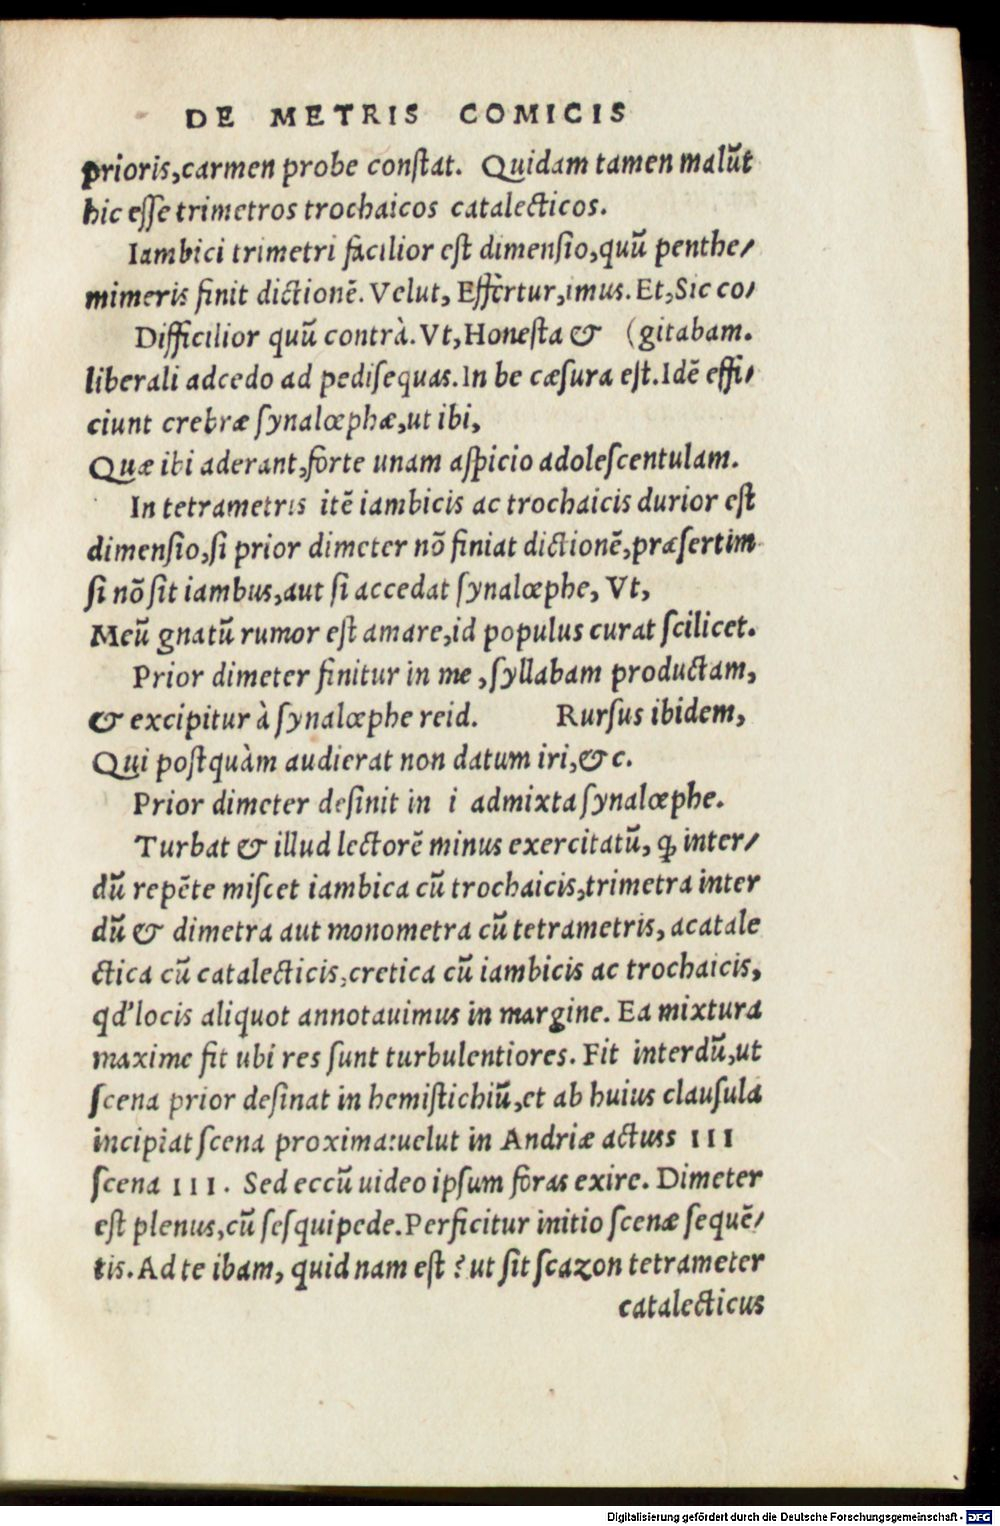 DE METRIS COMICIS
prioris,carmen probe conſtat. Quidam tamen malũt
hic eſſe trimetros trochaicos catalecticos.
Iambici trimetri facilior eſt dimenſio,quũ penthe/
mimeris finit dictionẽ. Velut, Effertur,imus. Et,Sic co/
Difficilior quũ contrà. Vt,Honeſta & (gitabam.
liberali adcedo ad pediſequas. In be cæſura eſt. Idẽ effi/
ciunt crebræ ſynalœphæ,ut ibi,
Quæ ibi aderant,forte unam aſpicio adoleſcentulam.
In tetrametris itẽ iambicis ac trochaicis durior eſt
dimenſio,ſi prior dimeter nõ finiat dictionẽ,præſertim
ſi nõ ſit iambus,aut ſi accedat ſynalœphe, Vt,
Meũ gnatũ rumor eſt amare,id populus curat ſcilicet.
Prior dimeter finitur in me ,ſyllabam productam,
& excipitur à ſynalœphe reid. Rurſus ibidem,
Qui poſtquàm audierat non datum iri,& c.
Prior dimeter deſinit in i admixta ſynalœphe.
Turbat & illud lectorẽ minus exercitatũ, ꝙ inter/
dũ repẽte miſcet iambica cũ trochaicis,trimetra inter
dũ & dimetra aut monometra cũ tetrametris, acatale
ctica cũ catalecticis,cretica cũ iambicis ac trochaicis,
qd' locis aliquot annotauimus in margine. Ea mixtura
maxime fit ubi res ſunt turbulentiores. Fit interdũ,ut
ſcena prior deſinat in hemiſtichiũ,et ab huius clauſula
incipiat ſcena proxima:uelut in Andriæ actuss III
ſcena III. Sed eccũ uideo ipſum foras exire. Dimeter
eſt plenus,cũ ſeſquipede. Perficitur initio ſcenæ ſequẽ/
tis. Ad te ibam, quid nam eſt ? ut ſit ſcazon tetrameter
catalecticus
Digitalisierung gefördert durch die Deutsche Forschungsgemeinschaft - DFG